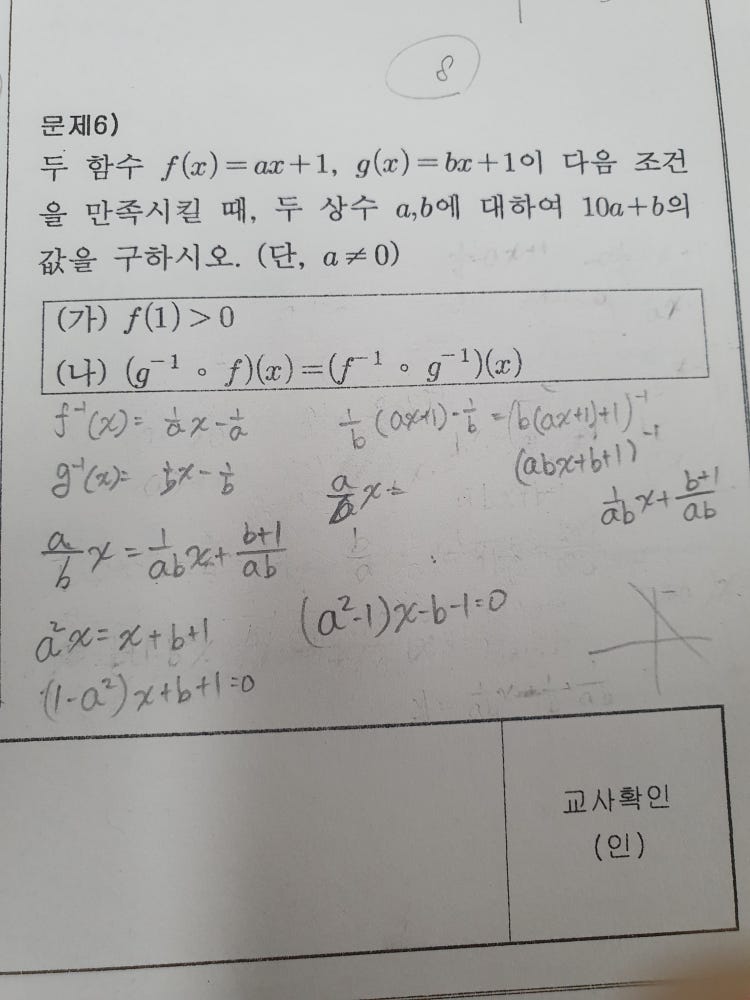 8
문제6)
두 함수 f(x)=ax+1, g(x)=bx+1이 다음 조건
을 만족시킬 때, 두 상수 a,b에 대하여 10a+b의
값을 구하시오. (단, a≠0)
(가) f(1)>0
(나) (g⁻¹ ∘ f)(x)=(f⁻¹ ∘ g⁻¹)(x)
f⁻¹(x)= 1/a x - 1/a
1/b (ax+1) - 1/b = (b(ax+1)+1)⁻¹
g⁻¹(x)= 1/b x - 1/b
(abx+b+1)⁻¹
a/b x =
1/ab x + b+1/ab
a/b x = 1/ab x + b+1/ab
a²x = x+b+1
(a²-1)x-b-1=0
(1-a²)x+b+1=0
교사확인
(인)